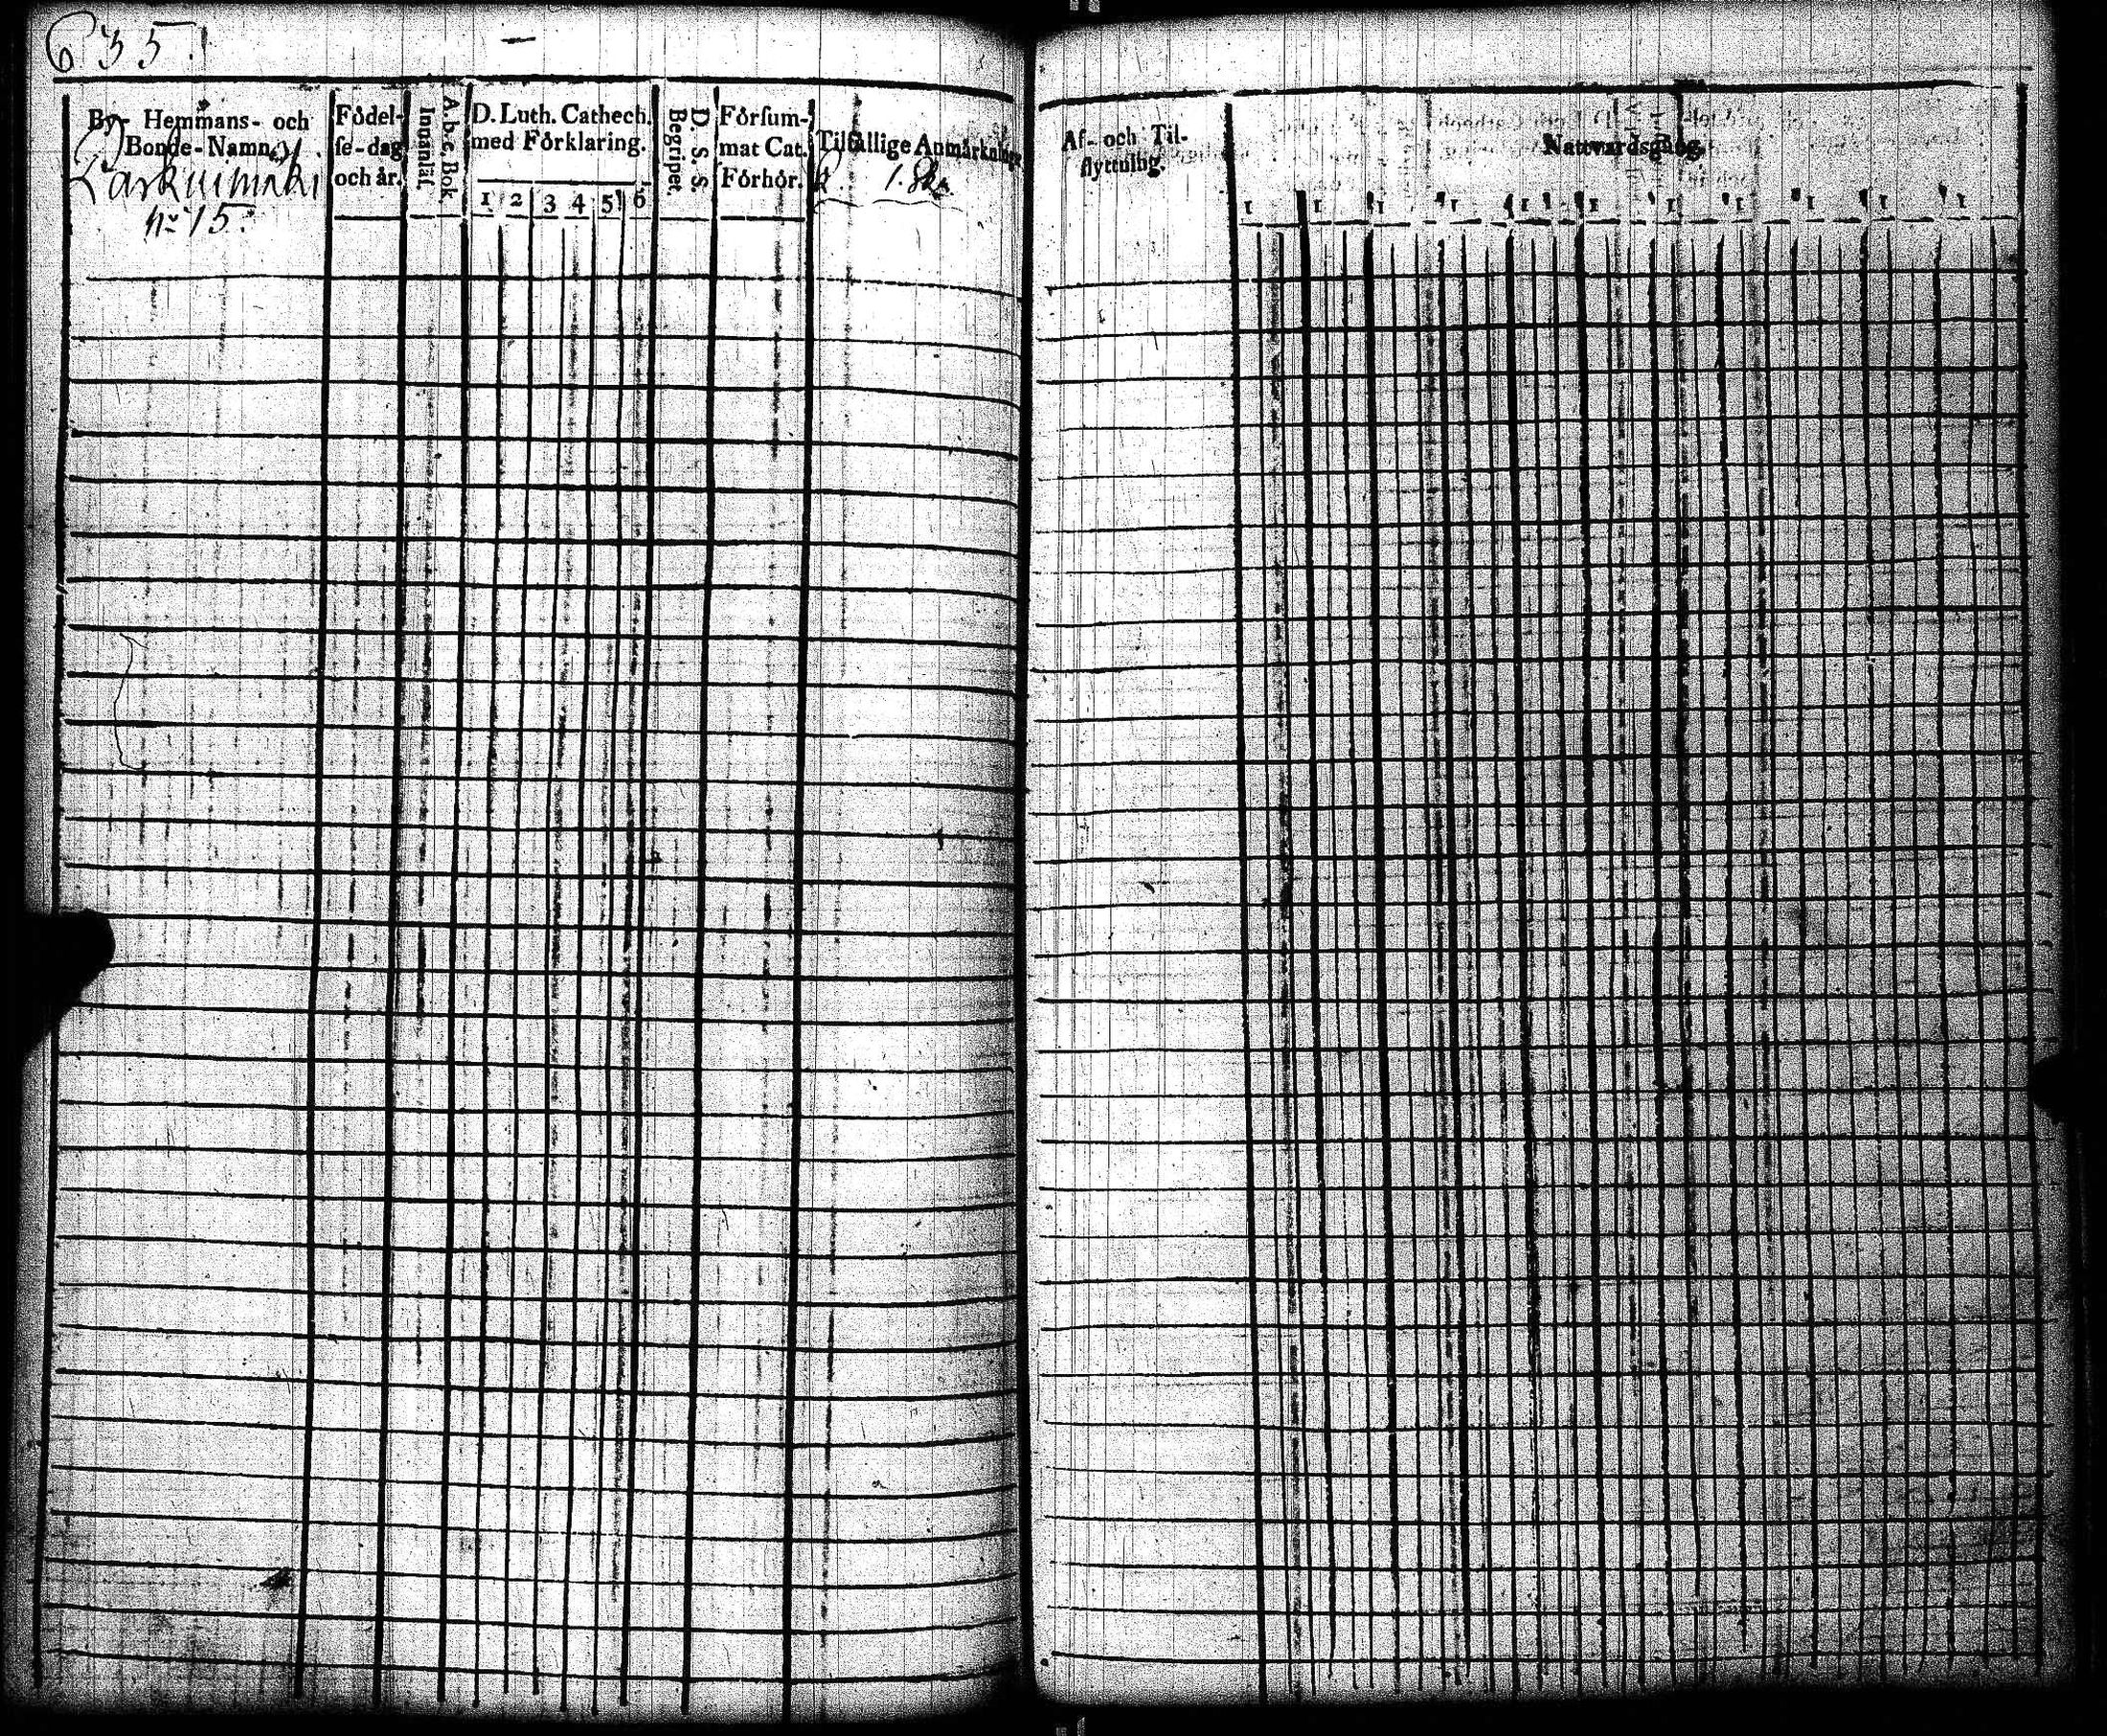 635.
By- Hemmans- och
Bonde-Namn.
Parkuimäki
n:o 15.
Födel-
se-dag
och år.
Innanläs.
A.b.c. Bok
D. Luth. Cathech.
med Förklaring.
1 2 3 4 5 6
D. S. S.
Begripet.
Försum-
mat Cat.
Förhör.
Tilfällige Anmärkningar
Af- och Til-
flyttning.
Nattvardsgång.
1 1 1 1 1 1 1 1 1 1 1